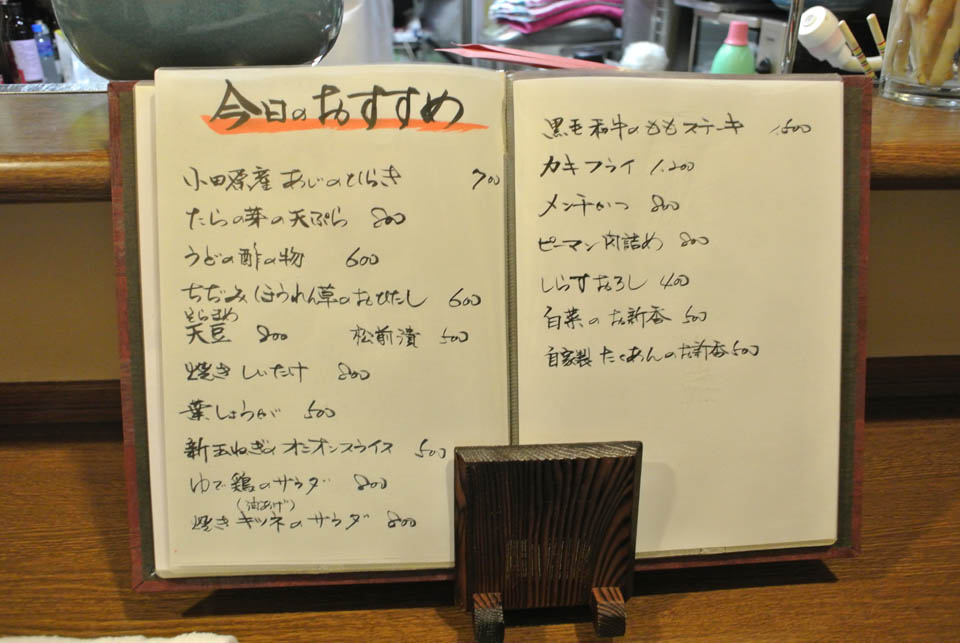 今日のおすすめ
小田原産あじのひらき 700
たらの芽の天ぷら 800
うどの酢の物 600
ちぢみほうれん草のおひたし 600
そらまめ
天豆 800 松前漬 500
焼きしいたけ 800
葉しょうが 500
新玉ねぎのオニオンスライス 500
ゆで鶏のサラダ 800
(油あげ)
焼きキツネのサラダ 800
黒毛和牛のももステーキ 1,500
カキフライ 1,200
メンチかつ 800
ピーマン肉詰め 800
しらすおろし 400
白菜のお新香 500
自家製たくあんのお新香 500